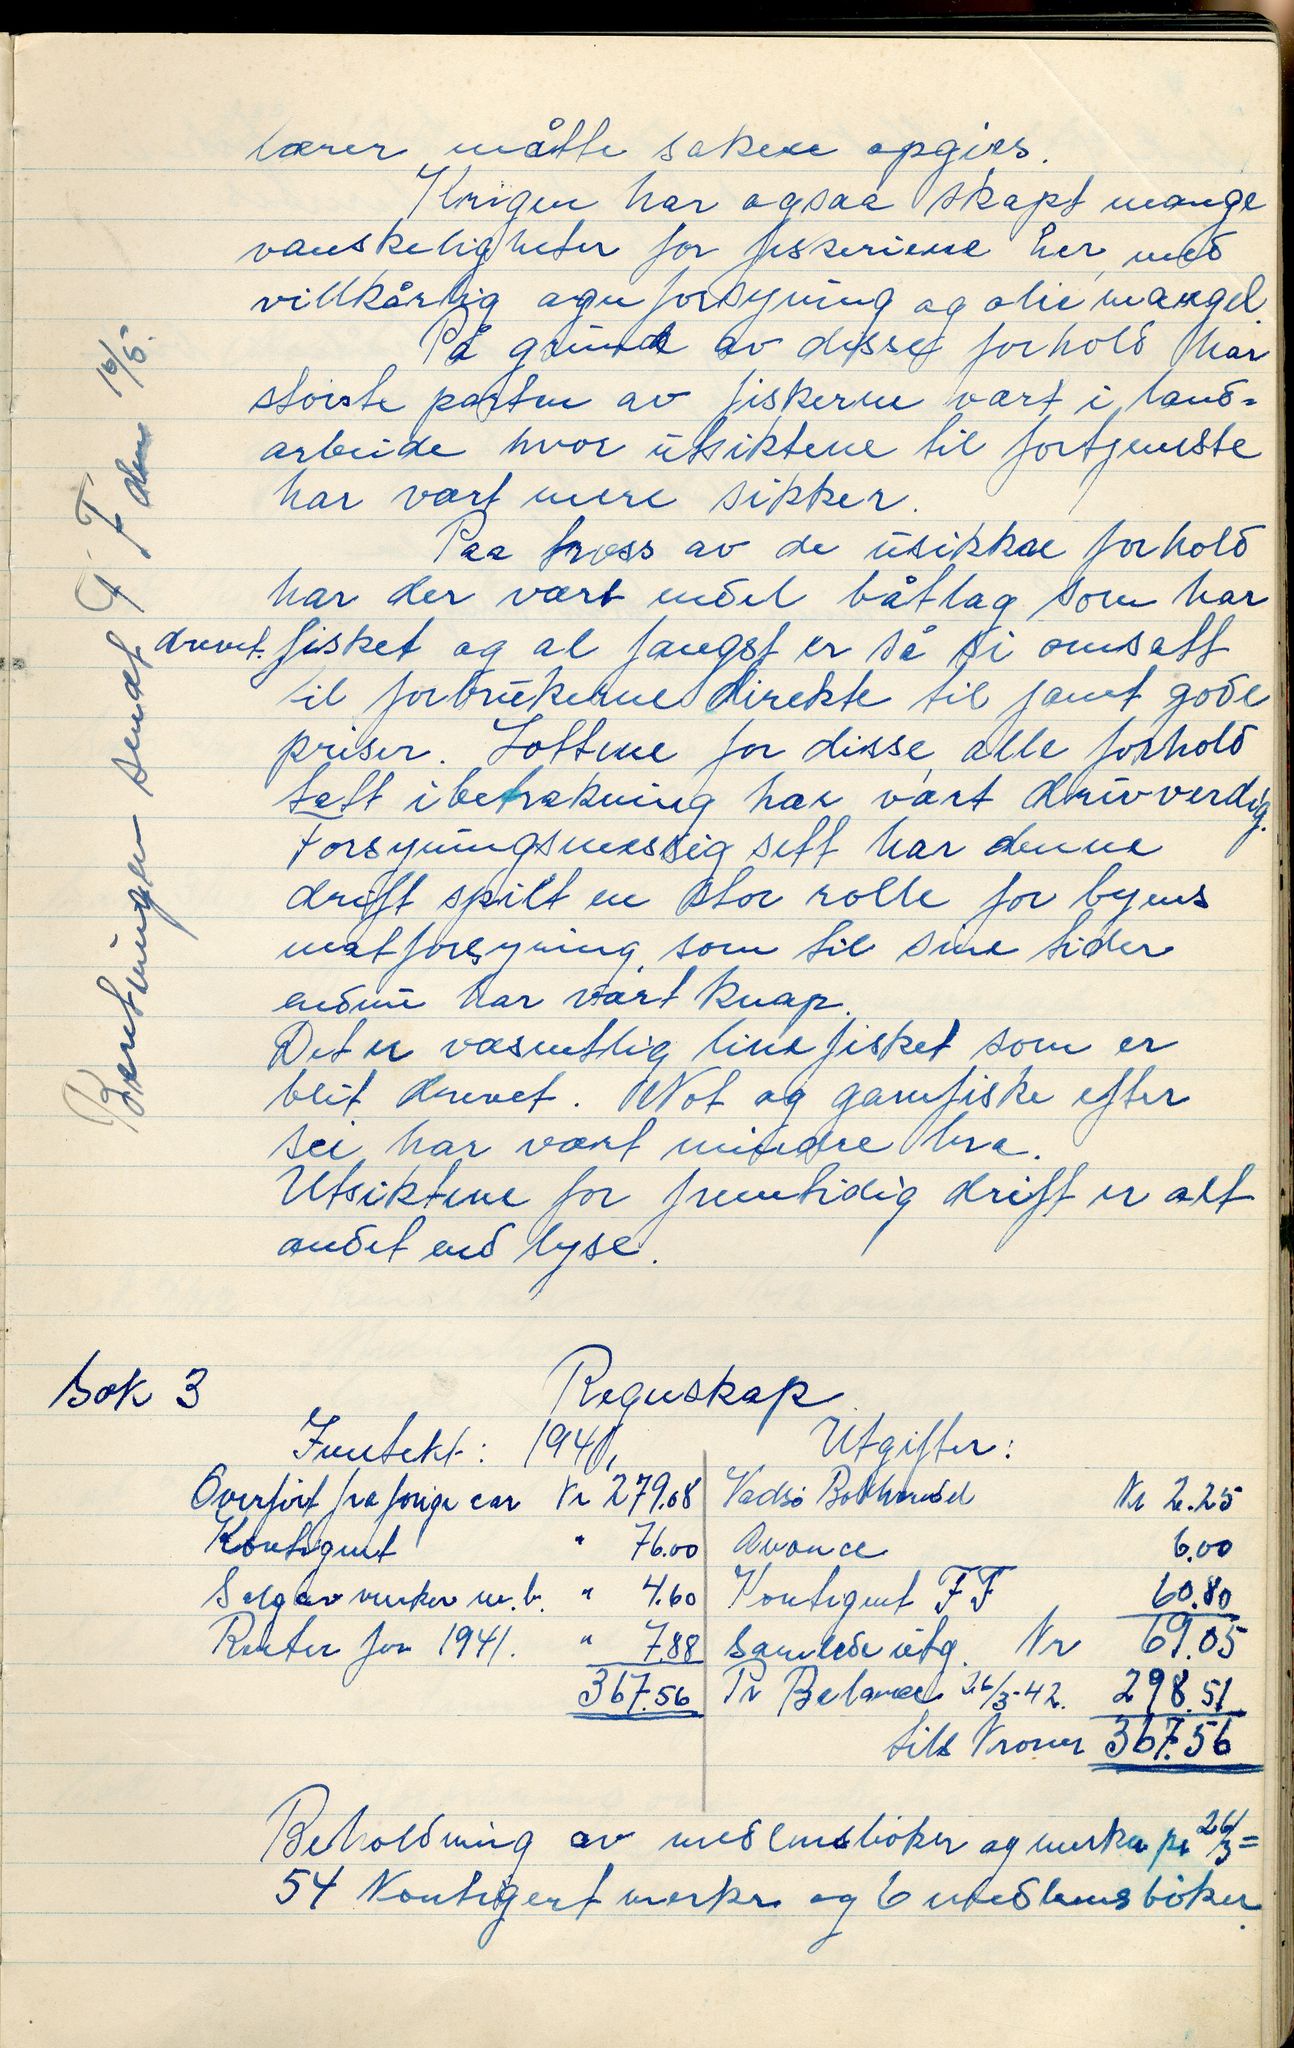 lærer måtte saken opgies.
Krigen har ogsaa skapt mange
vanskeligheter for fiskeriene her, med
villkårlig agnforsyning og oliemangel.
På grund av disse forhold har
störste parten av fiskerne vært i land-
arbeide hvor utsiktene til fortjeneste
har vært mere sikker.
Paa tross av de usikkre forhold
har der vært endel båtlag som har
drevet fisket og al fangst er så si omsatt
til forbrukerne direkte til jamt gode
priser. Lottene for disse, alle forhold
tatt i betrakning har vært drivverdig.
Forsyningsmessig sett har denne
drift spilt en stor rolle for byens
matforsyning, som til sine tider
endnu har vært knap.
Det er væsentlig linefisket som er
blit drevet. Not og garnfiske efter
sei har vært mindre bra.
Utsiktene for fremtidig drift er alt
andet end lyse.
Beretningen sendt F. F. den 16/5.
Sak 3 Regnskap
Inntekt: 1941, Utgifter:
Overfört fra forige aar Kr 279.08 Vadsö Bokhandel Kr 2.25
Kontigent " 76.00 Avance 6.00
Salg av merker m.b. " 4.60 Kontigent FF 60.80
Renter for 1941. " 7.88 Samlede utg. Kr 69.05
367.56 Pr Balance 26/3-42. 298.51
tils Kroner 367.56
Beholdning av medlemsböker og merker pr 26/3 =
54 Kontigent merker og 6 medlemsböker.